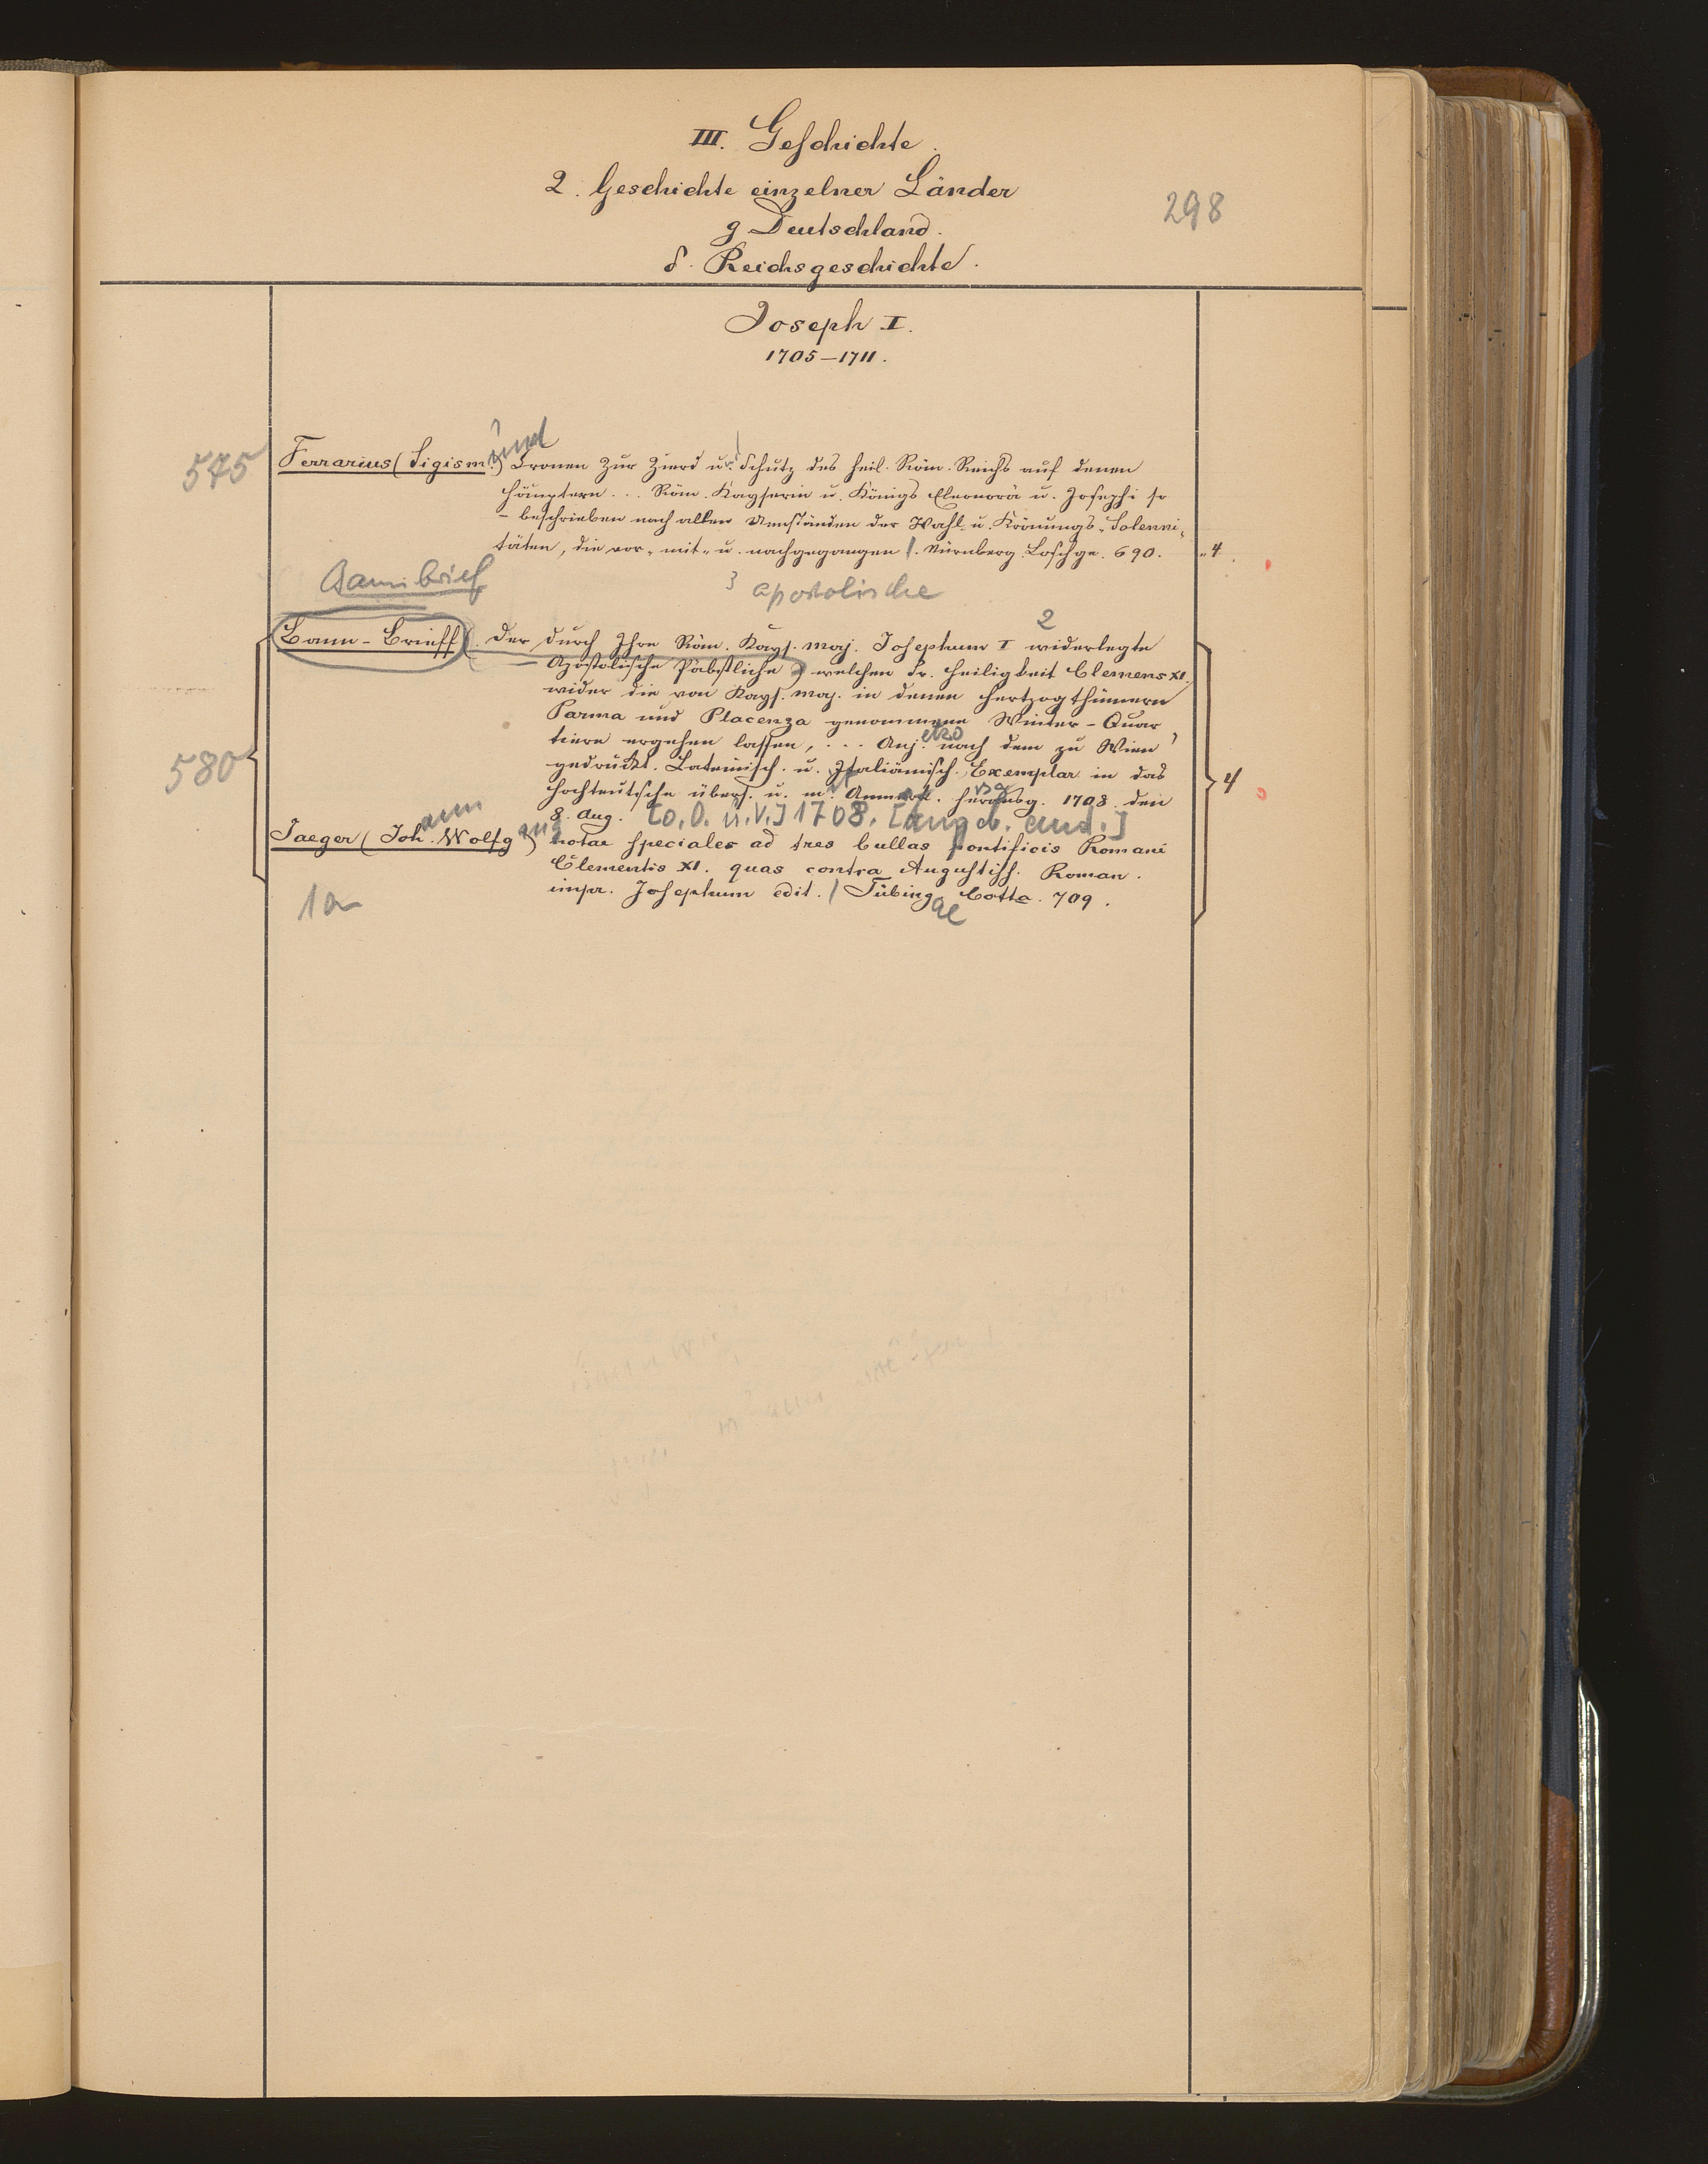 III. Geschichte.
2. Geschichte einzelner Länder
g Deutschland.
δ. Reichsgeschichte.
298
Joseph I.
1705–1711.
mund
575 Ferrarius (Sigism.) Cronen zur Zierd u. Schutz des heil. Röm. Reichs auf denen
Häuptern... Röm. Kayserin u. Königs Eleonorä u. Josephi so
– beschrieben nach allen Umständen der Wahl- u. Krönungs-Solenni-
täten, die vor- mit- u. nachgegangen /. Nürnberg. Loschge. 690. 4.
Bannbrief 3 apostolische
2
Bann-Brieff (. Der durch Ihre Röm. Kays. Maj. Josephum I widerlegte
Apostolische Päbstliche) welchen Sr. Heiligkeit Clemens XI.
wider die von Kays. Maj. in denen Hertzogthümern
Parma und Placenza genommene Winter-Quar-
tiere ergehen lassen, ... Anj. nach dem zu Wien
580 gedruckt. Lateinisch. u. Italiänisch. Exemplar in das 4
Hochteutsche übers. u. m. Anmerk. herausg. 1708. den
8. Aug. [o. O. u. V.] 1708. [angeb. and.]
ann ang
Jaeger (Joh. Wolfg) notae speciales ad tres bullas pontificis Romani
Clementis XI. quas contra Augustiss. Roman.
1a impr. Josephum edit. / Tübing. Cotta. 709.
ae